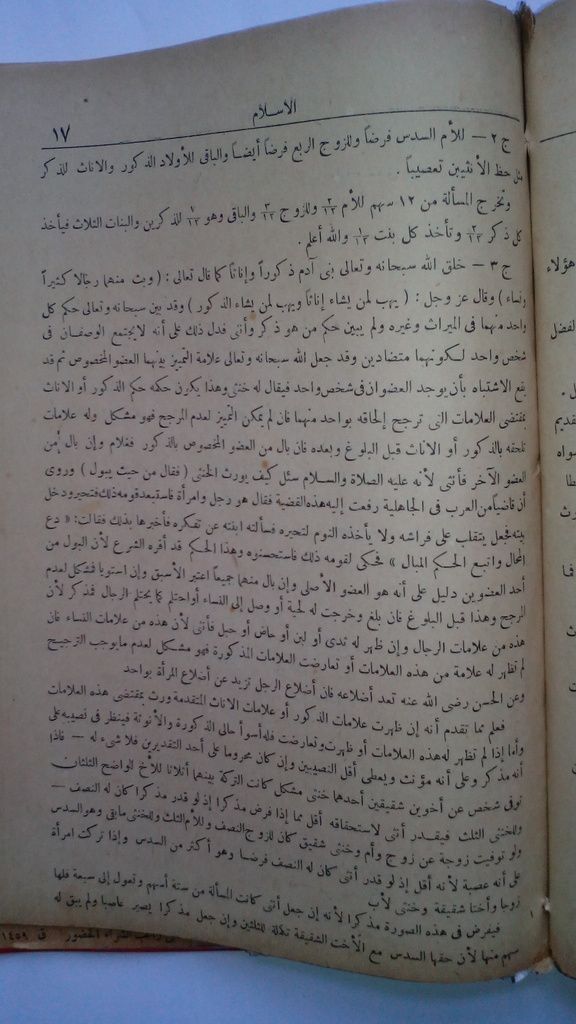 الاسلام
١٧
ج ٢ — للأم السدس فرضاً وللزوج الربع فرضاً أيضاً والباقى للأولاد الذكور والاناث للذكر
مثل حظ الأنثيين تعصيباً .
وتخرج المسألة من ١٢ سهم للأم ٢/١٢ وللزوج ٣/١٢ والباقى وهو للذكرين والبنات الثلاث فيأخذ
كل ذكر ٢/١٢ وتأخذ كل بنت ١/١٢ والله أعلم .
ج ٣ — خلق الله سبحانه وتعالى بنى آدم ذكوراً وإناثاً كما قال تعالى : ( وبث منهما رجالا كثيراً
ونساء ) وقال عز وجل : ( يهب لمن يشاء إناثاً ويهب لمن يشاء الذكور ) وقد بين سبحانه وتعالى حكم كل
واحد منهما فى الميراث وغيره ولم يبين حكم من هو ذكر وأنثى فدل ذلك على أنه لا يجتمع الوصفان فى
شخص واحد لكونهما متضادين وقد جعل الله سبحانه وتعالى علامة التمييز بينهما العضو المخصوص ثم قد
يقع الاشتباه بأن يوجد العضوان فى شخص واحد فيقال له خنثى وهذا يكون حكمه حكم الذكور أو الاناث
بمقتضى العلامات التى ترجح إلحاقه بواحد منهما فان لم يمكن التمييز لعدم المرجح فهو مشكل وله علامات
تلحقه بالذكور أو الاناث قبل البلوغ وبعده فان بال من العضو المخصوص بالذكور فغلام وإن بال من
العضو الآخر فأنثى لأنه عليه الصلاة والسلام سئل كيف يورث الخنثى ( فقال من حيث يبول ) وروى
أن قاضياً من العرب فى الجاهلية رفعت إليه هذه القضية فقال هو رجل وامرأة فاستبعد قومه ذلك فتحير ودخل
بيته فجعل يتقلب على فراشه ولا يأخذه النوم لتحيره فسألته ابنته عن تفكره فأخبرها بذلك فقالت : « دع
المحال واتبع الحكم المبال » فحكى لقومه ذلك فاستحسنوه وهذا الحكم قد أقره الشرع لأن البول من
أحد العضوين دليل على أنه هو العضو الأصلى وإن بال منهما جميعاً اعتبر الأسبق وإن استويا فمشكل لعدم
المرجح وهذا قبل البلوغ فان بلغ وخرجت له لحية أو وصل إلى النساء أو احتلم كما يحتلم الرجال فذكر لأن
هذه من علامات الرجال وإن ظهر له ثدى أو لبن أو حاض أو حبل فأنثى لأن هذه من علامات النساء فان
لم تظهر له علامة من هذه العلامات أو تعارضت العلامات المذكورة فهو مشكل لعدم ما يوجب الترجيح
وعن الحسن رضى الله عنه تعد أضلاعه فان أضلاع الرجل تزيد عن أضلاع المرأة بواحد
فعلم مما تقدم أنه إن ظهرت علامات الذكور أو علامات الاناث المتقدمة ورث بمقتضى هذه العلامات
وأما إذا لم تظهر له هذه العلامات أو ظهرت وتعارضت فله أسوأ حالى الذكورة والأنوثة فينظر فى نصيبه على
أنه مذكر وعلى أنه مؤنث ويعطى أقل النصيبين وإن كان محروما على أحد التقديرين فلا شىء له — فاذا
توفى شخص عن أخوين شقيقين أحدهما خنثى مشكل كانت التركة بينهما أثلاثا للأخ الواضح الثلثان
وللخنثى الثلث فيقدر أنثى لاستحقاقه أقل مما إذا فرض مذكرا إذ لو قدر مذكرا كان له النصف —
ولو توفيت زوجة عن زوج وأم وخنثى شقيق كان للزوج النصف وللأم الثلث وللخنثى ما بقى وهو السدس
على أنه عصبة لأنه أقل إذ لو قدر أنثى كان له النصف فرضا وهو أكثر من السدس وإذا تركت امرأة
زوجا وأختا شقيقة وخنثى لأب
فيفرض فى هذه الصورة مذكرا لأنه إن جعل أنثى كانت المسألة من ستة أسهم وتعول إلى سبعة فلها
سهم منها لأن حقها السدس مع الأخت الشقيقة تكملة للثلثين وإن جعل مذكرا يصير عاصبا ولم يبق له
هؤلاء
لفضل
قديم
سواه
فما